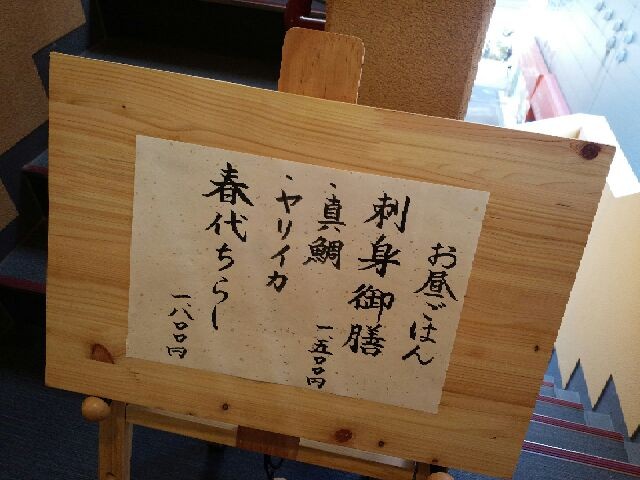 お昼ごはん
刺身御膳
一、五〇〇円
・真鯛
・ヤリイカ
春代ちらし
一八〇〇円